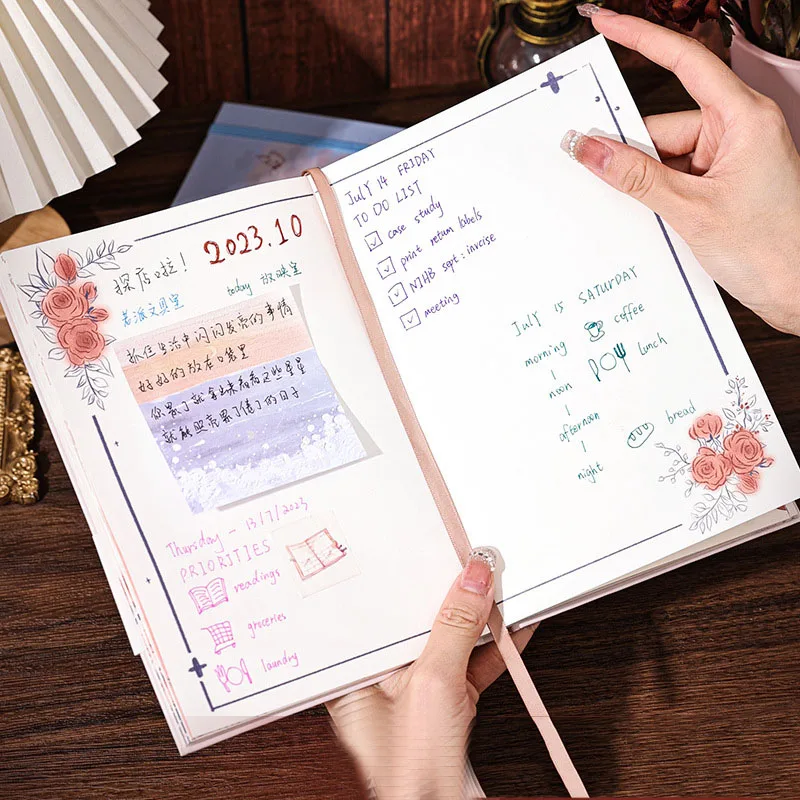 2023.10
探店啦!
today 放映室
若派文具室
抓住生活中闪闪发亮的事情
好好的放在口袋里
你累了就拿出来看看这些星星
就能照亮那
的日子
Thursday - 13/7/2023
PRIORITIES
readings
groceries
laundry
JULY 14 FRIDAY
TO DO LIST
case study
print return labels
NIHB sqpt: invoise
meeting
JULY 15 SATURDAY
morning
coffee
lunch
noon
afternoon
bread
night